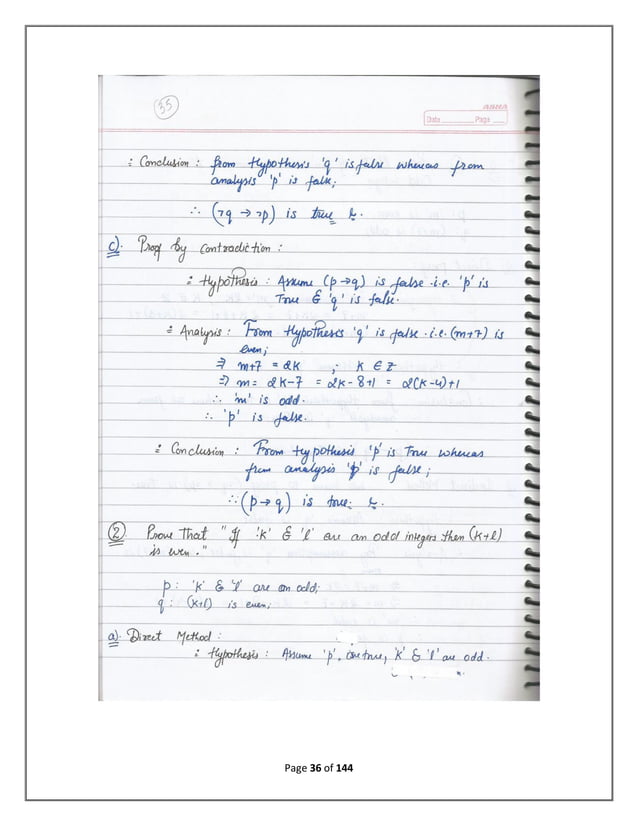 35
Date Page
∴ Conclusion : from Hypothesis 'q' is false whereas from
analysis 'p' is false;
∴ (¬q → ¬p) is true
c). Proof by Contradiction :
∴ Hypothesis : Assume (p → q) is false i.e. 'p' is
True & 'q' is false.
∴ Analysis : From Hypothesis 'q' is false i.e. (m+7) is
even;
⇒ m+7 = 2K ; K ∈ Z
⇒ m = 2K-7 = 2K-8+1 = 2(K-4)+1
∴ 'm' is odd.
∴ 'p' is false.
∴ Conclusion : From Hypothesis 'p' is True whereas
from analysis 'p' is false;
∴ (p → q) is true.
② Prove that "If 'k' & 'l' are an odd integers then (k+l)
is even."
p : 'k' & 'l' are an odd;
q : (k+l) is even;
a). Direct Method :
∴ Hypothesis : Assume 'p' true, 'k' & 'l' are odd.
Page 36 of 144